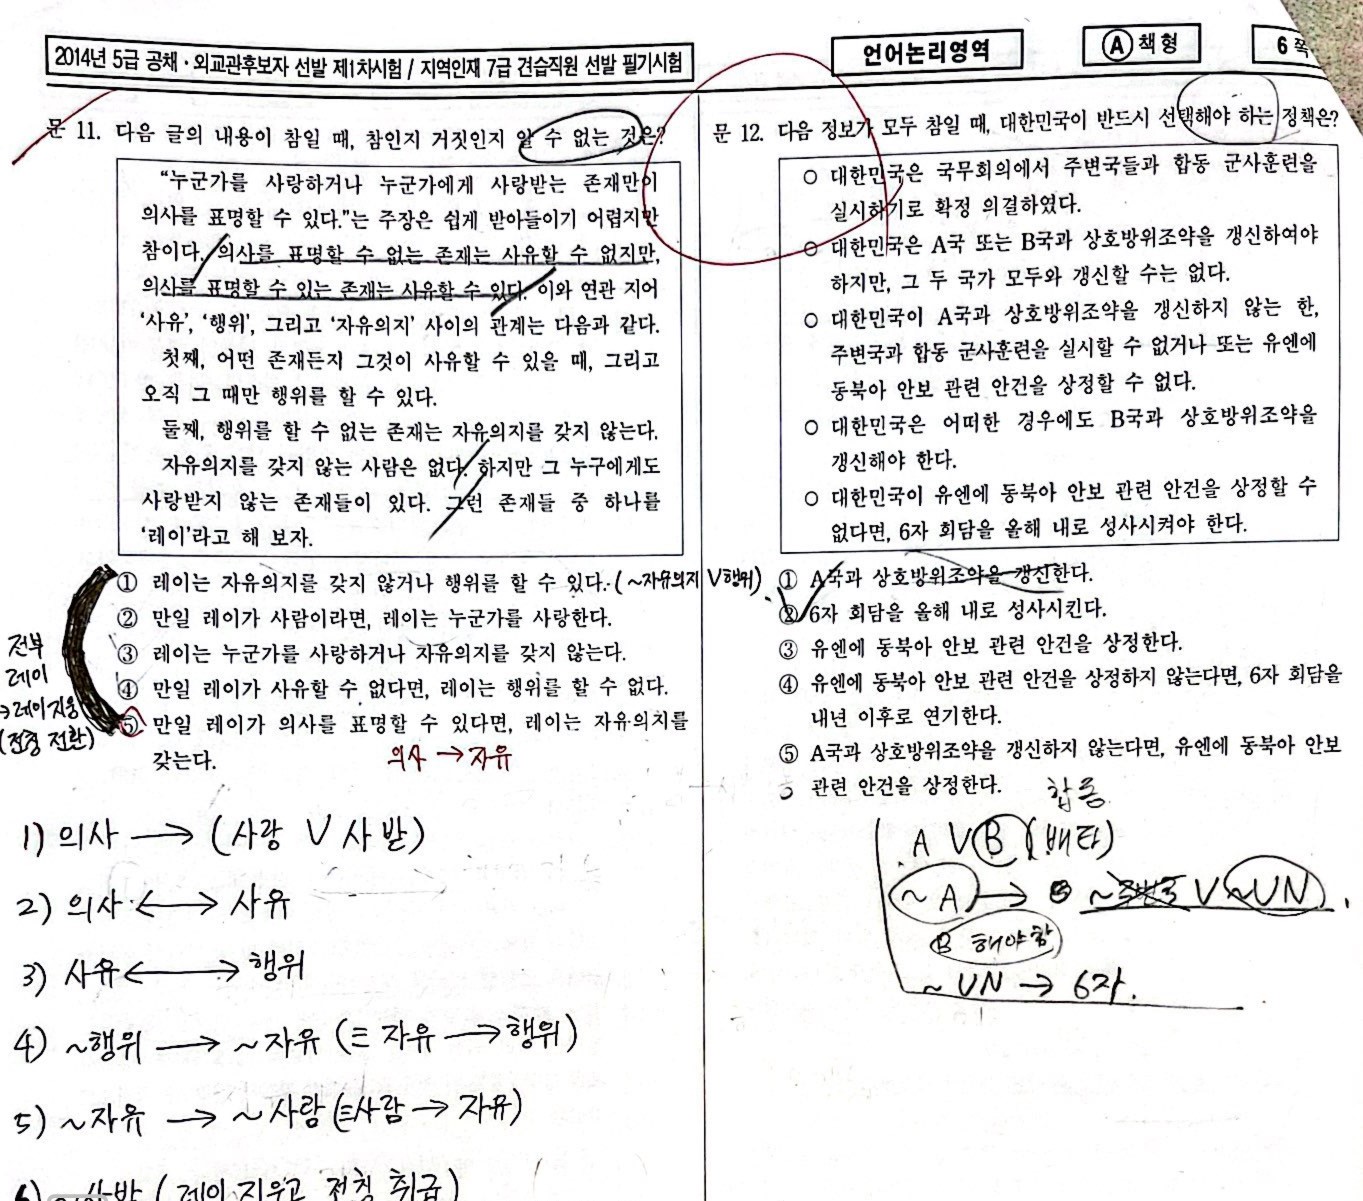 2014년 5급 공채·외교관후보자 선발 제1차시험 / 지역인재 7급 견습직원 선발 필기시험
언어논리영역
Ⓐ 책형
6 쪽
문 11. 다음 글의 내용이 참일 때, 참인지 거짓인지 알 수 없는 것은?
“누군가를 사랑하거나 누군가에게 사랑받는 존재만이
의사를 표명할 수 있다.”는 주장은 쉽게 받아들이기 어렵지만
참이다. 의사를 표명할 수 없는 존재는 사유할 수 없지만,
의사를 표명할 수 있는 존재는 사유할 수 있다. 이와 연관 지어
‘사유’, ‘행위’, 그리고 ‘자유의지’ 사이의 관계는 다음과 같다.
첫째, 어떤 존재든지 그것이 사유할 수 있을 때, 그리고
오직 그 때만 행위를 할 수 있다.
둘째, 행위를 할 수 없는 존재는 자유의지를 갖지 않는다.
자유의지를 갖지 않는 사람은 없다. 하지만 그 누구에게도
사랑받지 않는 존재들이 있다. 그런 존재들 중 하나를
‘레이’라고 해 보자.
① 레이는 자유의지를 갖지 않거나 행위를 할 수 있다. (~자유의지 V 행위)
② 만일 레이가 사람이라면, 레이는 누군가를 사랑한다.
③ 레이는 누군가를 사랑하거나 자유의지를 갖지 않는다.
④ 만일 레이가 사유할 수 없다면, 레이는 행위를 할 수 없다.
⑤ 만일 레이가 의사를 표명할 수 있다면, 레이는 자유의지를
갖는다.
의사 → 자유
전부
레이
→레이지움
(전칭 전환)
1) 의사 → (사랑 V 사받)
2) 의사 ↔ 사유
3) 사유 ↔ 행위
4) ~행위 → ~자유 (≡ 자유 → 행위)
5) ~자유 → ~사람 (≡사람 → 자유)
6) (레이 지우고 전칭 취급)
문 12. 다음 정보가 모두 참일 때, 대한민국이 반드시 선택해야 하는 정책은?
○ 대한민국은 국무회의에서 주변국들과 합동 군사훈련을
실시하기로 확정 의결하였다.
○ 대한민국은 A국 또는 B국과 상호방위조약을 갱신하여야
하지만, 그 두 국가 모두와 갱신할 수는 없다.
○ 대한민국이 A국과 상호방위조약을 갱신하지 않는 한,
주변국과 합동 군사훈련을 실시할 수 없거나 또는 유엔에
동북아 안보 관련 안건을 상정할 수 없다.
○ 대한민국은 어떠한 경우에도 B국과 상호방위조약을
갱신해야 한다.
○ 대한민국이 유엔에 동북아 안보 관련 안건을 상정할 수
없다면, 6자 회담을 올해 내로 성사시켜야 한다.
① A국과 상호방위조약을 갱신한다.
② 6자 회담을 올해 내로 성사시킨다.
③ 유엔에 동북아 안보 관련 안건을 상정한다.
④ 유엔에 동북아 안보 관련 안건을 상정하지 않는다면, 6자 회담을
내년 이후로 연기한다.
⑤ A국과 상호방위조약을 갱신하지 않는다면, 유엔에 동북아 안보
관련 안건을 상정한다.
합동
A V B (배타)
~A → V ~UN
B 해야함
~UN → 6자.